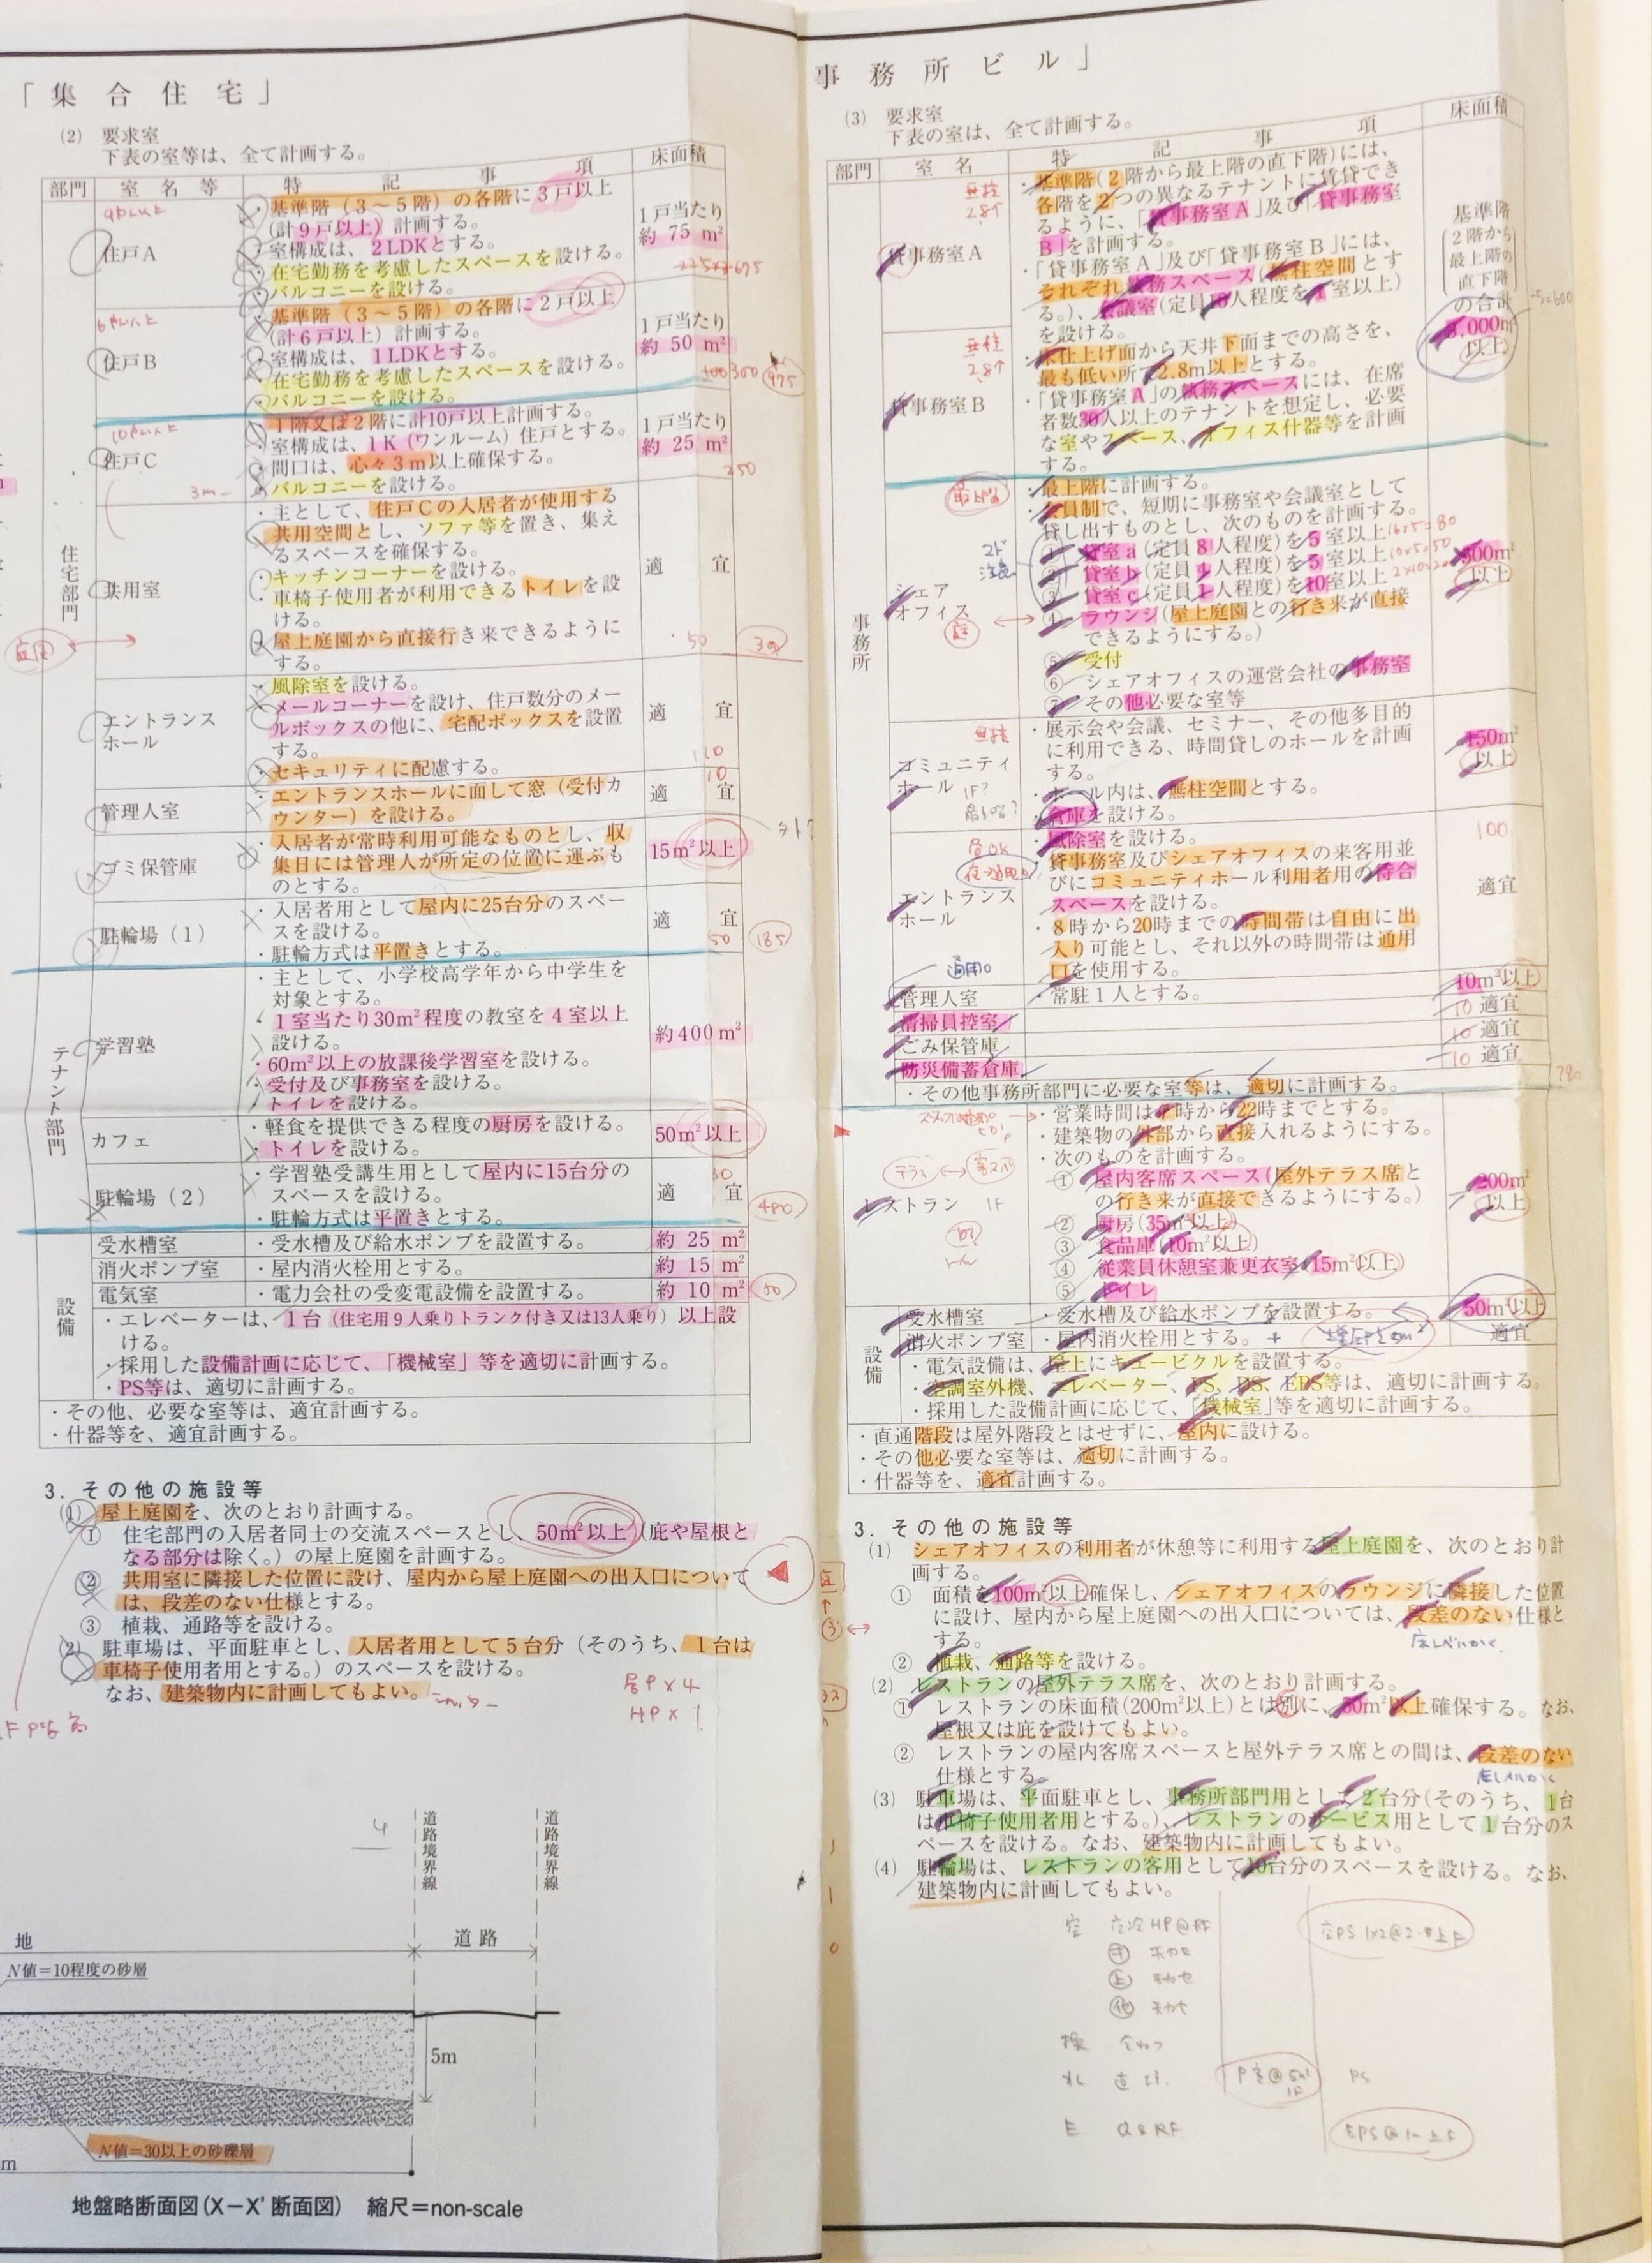 「集合住宅」
(2) 要求室
下表の室等は、全て計画する。
部門 室名等 特記事項 床面積
住宅部門
9戸以上
住戸A
・基準階（3～5階）の各階に3戸以上
(計9戸以上）計画する。
・室構成は、2LDKとする。
・在宅勤務を考慮したスペースを設ける。
・バルコニーを設ける。
1戸当たり
約 75 m²
6戸以上
住戸B
・基準階（3～5階）の各階に2戸以上
(計6戸以上）計画する。
・室構成は、1LDKとする。
・在宅勤務を考慮したスペースを設ける。
・バルコニーを設ける。
1戸当たり
約 50 m²
300
975
10戸以上
住戸C
3m
・1階又は2階に計10戸以上計画する。
・室構成は、1K（ワンルーム）住戸とする。
・間口は、心々3m以上確保する。
・バルコニーを設ける。
1戸当たり
約 25 m²
250
共用室
・主として、住戸Cの入居者が使用する
共用空間とし、ソファ等を置き、集え
るスペースを確保する。
・キッチンコーナーを設ける。
・車椅子使用者が利用できるトイレを設
ける。
・屋上庭園から直接行き来できるように
する。
適 宜
50
エントランス
ホール
・風除室を設ける。
・メールコーナーを設け、住戸数分のメー
ルボックスの他に、宅配ボックスを設置
する。
・セキュリティに配慮する。
適 宜
110
管理人室
・エントランスホールに面して窓（受付カ
ウンター）を設ける。
適 宜
10
ゴミ保管庫
・入居者が常時利用可能なものとし、収
集日には管理人が所定の位置に運ぶも
のとする。
15m²以上
駐輪場（1）
・入居者用として屋内に25台分のスペー
スを設ける。
・駐輪方式は平置きとする。
適 宜
50
185
テナント部門
学習塾
・主として、小学校高学年から中学生を
対象とする。
・1室当たり30m²程度の教室を4室以上
設ける。
・60m²以上の放課後学習室を設ける。
・受付及び事務室を設ける。
・トイレを設ける。
約400m²
カフェ
・軽食を提供できる程度の厨房を設ける。
・トイレを設ける。
50m²以上
駐輪場（2）
・学習塾受講生用として屋内に15台分の
スペースを設ける。
・駐輪方式は平置きとする。
適 宜
30
480
設備
受水槽室 ・受水槽及び給水ポンプを設置する。 約 25 m²
消火ポンプ室 ・屋内消火栓用とする。 約 15 m²
電気室 ・電力会社の受変電設備を設置する。 約 10 m²
50
・エレベーターは、1台（住宅用9人乗りトランク付き又は13人乗り）以上設
ける。
・採用した設備計画に応じて、「機械室」等を適切に計画する。
・PS等は、適切に計画する。
・その他、必要な室等は、適宜計画する。
・什器等を、適宜計画する。
3．その他の施設等
(1) 屋上庭園を、次のとおり計画する。
① 住宅部門の入居者同士の交流スペースとし、50m²以上（庇や屋根と
なる部分は除く。）の屋上庭園を計画する。
② 共用室に隣接した位置に設け、屋内から屋上庭園への出入口について
は、段差のない仕様とする。
③ 植栽、通路等を設ける。
(2) 駐車場は、平面駐車とし、入居者用として5台分（そのうち、1台は
車椅子使用者用とする。）のスペースを設ける。
なお、建築物内に計画してもよい。
居P×4
HP×1
道路境界線
道路境界線
地
道 路
N値＝10程度の砂層
5m
N値＝30以上の砂礫層
m
地盤略断面図(X－X'断面図) 縮尺＝non-scale
事務所ビル」
(3) 要求室
下表の室は、全て計画する。
部門 室名 特記事項 床面積
事務所
無柱
2.8↑
貸事務室A
無柱
2.8↑
貸事務室B
・基準階(2階から最上階の直下階)には、
各階を2つの異なるテナントに賃貸でき
るように、「貸事務室A」及び「貸事務室
B」を計画する。
・「貸事務室A」及び「貸事務室B」には、
それぞれ執務スペース(無柱空間とす
る。)、会議室(定員10人程度を1室以上)
を設ける。
・床仕上げ面から天井下面までの高さを、
最も低い所で2.8m以上とする。
・「貸事務室A」の執務スペースには、在席
者数30人以上のテナントを想定し、必要
な室やスペース、オフィス什器等を計画
する。
基準階
2階から
最上階の
直下階
の合計
3,000m²
以上
最上階
シェア
オフィス
庭
・最上階に計画する。
・会員制で、短期に事務室や会議室として
貸し出すものとし、次のものを計画する。
① 貸室a(定員8人程度)を5室以上
② 貸室b(定員4人程度)を5室以上
③ 貸室c(定員1人程度)を10室以上
④ ラウンジ(屋上庭園との行き来が直接
できるようにする。)
⑤ 受付
⑥ シェアオフィスの運営会社の事務室
⑦ その他必要な室等
500m²
以上
無柱
コミュニティ
ホール
・展示会や会議、セミナー、その他多目的
に利用できる、時間貸しのホールを計画
する。
・ホール内は、無柱空間とする。
・倉庫を設ける。
150m²
以上
エントランス
ホール
・風除室を設ける。
・貸事務室及びシェアオフィスの来客用並
びにコミュニティホール利用者用の待合
スペースを設ける。
・8時から20時までの時間帯は自由に出
入り可能とし、それ以外の時間帯は通用
口を使用する。
100
適宜
管理人室 ・常駐1人とする。 10m²以上
清掃員控室 10 適宜
ごみ保管庫 10 適宜
防災備蓄倉庫 10 適宜
・その他事務所部門に必要な室等は、適切に計画する。
780
レストラン 1F
・営業時間は7時から22時までとする。
・建築物の外部から直接入れるようにする。
・次のものを計画する。
① 屋内客席スペース(屋外テラス席と
の行き来が直接できるようにする。)
② 厨房(35m²以上)
③ 食品庫(10m²以上)
④ 従業員休憩室兼更衣室(15m²以上)
⑤ トイレ
200m²
以上
設備
受水槽室 ・受水槽及び給水ポンプを設置する。 50m²以上
消火ポンプ室 ・屋内消火栓用とする。 適宜
・電気設備は、屋上にキュービクルを設置する。
・空調室外機、エレベーター、PS、DS、EPS等は、適切に計画する。
・採用した設備計画に応じて、「機械室」等を適切に計画する。
・直通階段は屋外階段とはせずに、屋内に設ける。
・その他必要な室等は、適切に計画する。
・什器等を、適宜計画する。
3．その他の施設等
(1) シェアオフィスの利用者が休憩等に利用する屋上庭園を、次のとおり計
画する。
① 面積を100m²以上確保し、シェアオフィスのラウンジに隣接した位置
に設け、屋内から屋上庭園への出入口については、段差のない仕様と
する。
② 植栽、通路等を設ける。
(2) レストランの屋外テラス席を、次のとおり計画する。
① レストランの床面積(200m²以上)とは別に、50m²以上確保する。なお、
屋根又は庇を設けてもよい。
② レストランの屋内客席スペースと屋外テラス席との間は、段差のない
仕様とする。
(3) 駐車場は、平面駐車とし、事務所部門用として2台分(そのうち、1台
は車椅子使用者用とする。)、レストランのサービス用として1台分のス
ペースを設ける。なお、建築物内に計画してもよい。
(4) 駐輪場は、レストランの客用として10台分のスペースを設ける。なお、
建築物内に計画してもよい。